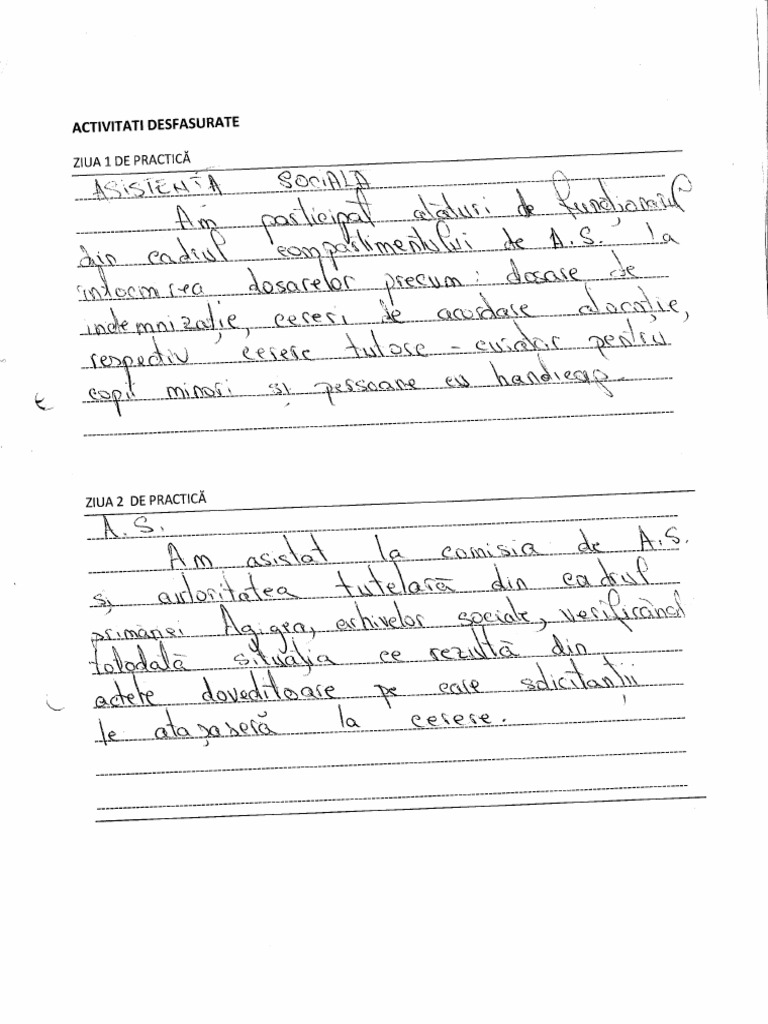 ACTIVITATI DESFASURATE
ZIUA 1 DE PRACTICĂ
ASISTENTA SOCIALA
Am participat alături de funcționarul
din cadrul compartimentului de A.S. la
întocmirea dosarelor precum: dosare de
indemnizație, cereri de acordare alocație,
respectiv cerere tutore - curator pentru
copii minori și persoane cu handicap.
ZIUA 2 DE PRACTICĂ
A.S.
Am asistat la comisia de A.S.
și autoritatea tutelară din cadrul
primariei Agigea, arhivelor sociale, verificând
totodată situația ce rezultă din
actele doveditoare pe care solicitanții
le atașaseră la cerere.